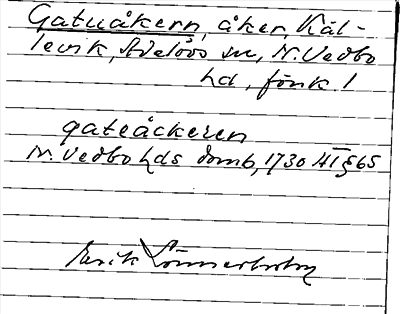 Gatuåkern, åker, Käl-
levik, Adelövs sn, N. Vedbo
hd, Jönk. l
gateåckeren
N. Vedbo hds domb, 1730 HT § 65
Erik Lönnerholm